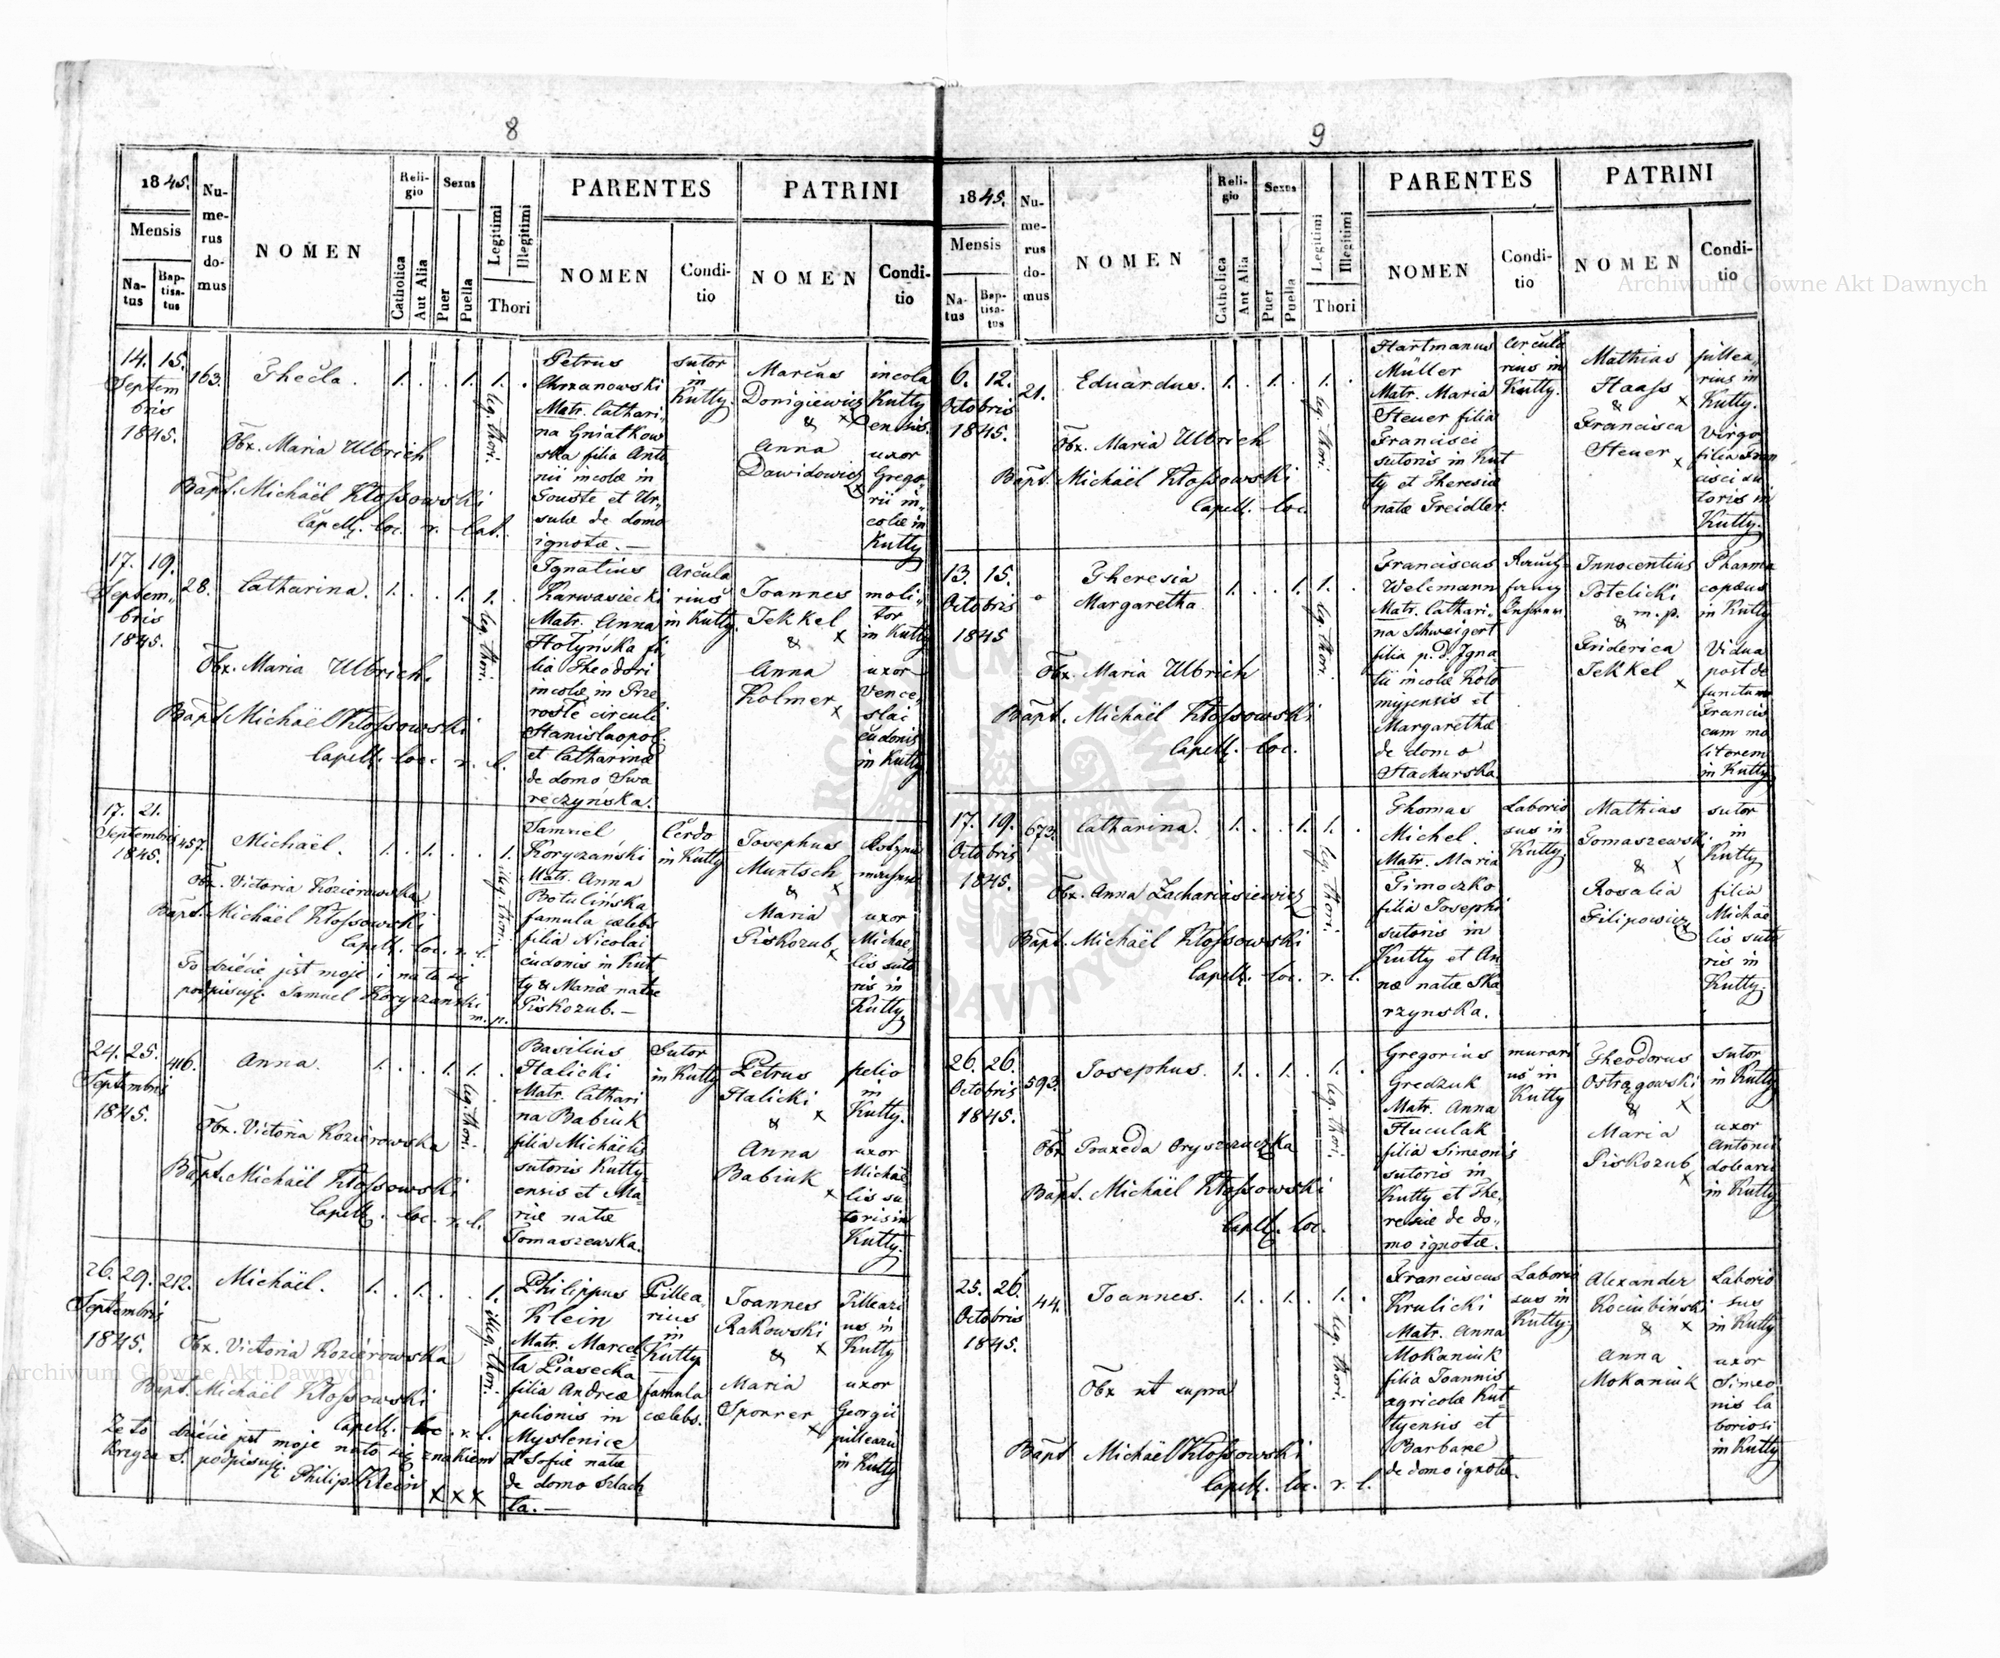 8
1845.
Mensis
Na-
tus
Bap-
tisa-
tus
Nu-
me-
rus
do-
mus
NOMEN
Reli-
gio
Catholica
Aut Alia
Sexus
Puer
Puella
Legitimi
Illegitimi
Thori
PARENTES
NOMEN
Condi-
tio
PATRINI
NOMEN
Condi-
tio
14. 15.
Septem
bris
1845.
163.
Thecla.
1. . . 1. 1. .
leg. thori.
Obx. Maria Ulbrich
Bapt. Michaël Kłossowski
Capell. loc. r. lat.
Petrus
Chrzanowski
Matr. Cathari,,
na Gniatkow
ska filia Anto
nii incolæ in
Touste et Ur,,
sulæ de domo
ignotæ. —
sutor
in
Kutty.
Marcus
Donigiewicz
& x
Anna
Dawidowicz
x
incola
Kutty
ensis.
uxor
Grego,,
rii in,,
colæ in
Kutty
17. 19.
Septem,,
bris
1845.
28.
Catharina.
1. . . 1. 1. .
leg. thori.
Obx. Maria Ulbrich.
Bapt. Michaël Kłossowski
Capell. loc. r. l.
Ignatius
Karwasiecki
Matr. Anna
Hołyńska fi,,
lia Theodori
incolæ in Prze
rośle circuli
Stanislaopol.
et Catharinæ
de domo Swa
reczyńska.
Arcula
rius
in Kutty.
Joannes
Jekkel
& x
Anna
Kolmer x
moli,,
tor
in Kutty
uxor
Vence,,
slai
cudonis
in Kutty
17. 21.
Septembris
1845.
457.
Michaël.
1. . 1. . . 1.
illeg. thori.
Obx. Victoria Kozierowska
Bapt. Michaël Kłossowski
Capell. loc. r. l.
To dziécie jest moje i na to się
podpisuję. Samuel Koryczański
m. p.
Samuel
Koryczański
Matr. Anna
Botulińska
famula cælebs
filia Nicolai
cudonis in Kut
ty & Mariæ natæ
Piskozub. —
Cerdo
in Kutty
Josephus
Muntsch
& x
Maria
Piskozub x
uxor
Michae,,
lis suto
ris in
Kutty
24. 25.
Septembris
1845.
416.
Anna.
1. . . 1. 1. .
leg. thori.
Obx. Victoria Kozierowska
Bapt. Michaël Kłossowski
Capell. loc. r. l.
Basilius
Halicki
Matr. Cathari
na Babiuk
filia Michaëlis
sutoris Kutty,,
ensis et Ma,,
riæ natæ
Tomaszewska.
Sutor
in Kutty
Petrus
Halicki
& x
Anna
Babiuk x
pelio
in
Kutty.
uxor
Michaë,,
lis su,,
toris in
Kutty.
26. 29.
Septembris
1845.
212.
Michaël.
1. . 1. . . 1.
illeg. thori.
Obx. Victoria Kozierowska
Bapt. Michaël Kłossowski
Capell. loc. r. l.
Że to dziécie jest moje na to się znakiem
krzyża S. podpisuję Philip Klein x x x
Philippus
Klein
Matr. Marcel,,
la Piasecka
filia Andreæ
pelionis in
Myslenice
& Sofiæ natæ
de domo Szlach
ta. —
Pillea,,
rius
in
Kutty
famula
cælebs.
Joannes
Rakowski
& x
Maria
Sporrer x
Pilleari
us in
Kutty
uxor
Georgii
pillearii
in Kutty
9
1845.
Mensis
Na-
tus
Bap-
tisa-
tus
Nu-
me-
rus
do-
mus
NOMEN
Reli-
gio
Catholica
Aut Alia
Sexus
Puer
Puella
Legitimi
Illegitimi
Thori
PARENTES
NOMEN
Condi-
tio
PATRINI
NOMEN
Condi-
tio
6. 12.
Octobris
1845.
21.
Eduardus.
1. . 1. . 1. .
leg. thori.
Obx. Maria Ulbrich
Bapt. Michaël Kłossowski
Capell. loc.
Hartmanus
Müller
Matr. Maria
Steuer filia
Francisci
sutoris in Kut
ty et Theresiæ
natæ Treidler
Arcula
rius in
Kutty.
Mathias
Haass
& x
Francisca
Steuer x
pillea,,
rius in
Kutty.
Virgo
filia Fran
cisci su
toris in
Kutty.
13. 15.
Octobris
1845
Theresia
Margaretha
1. . . 1. 1. .
leg. thori.
Obx. Maria Ulbrich
Bapt. Michaël Kłossowski
Capell. loc.
Franciscus
Welcmann
Matr. Cathari,,
na Schweigert
filia p. d. Igna,,
tii incolæ Koło
myjensis et
Margarethæ
de domo
Stachurska.
Innocentius
Potelicki
m. p.
&
Friderica
Jekkel x
Pharma
copæus
in Kutty
Vidua
post de
functum
Francis
cum mo
litorem
in Kutty
17. 19.
Octobris
1845.
673.
Catharina.
1. . . 1. 1. .
leg. thori.
Obx. Anna Zachariasiewicz
Bapt. Michaël Kłossowski
Capell. loc. r. l.
Thomas
Michel.
Matr. Maria
Timoczko
filia Josephi
sutoris in
Kutty et An
næ natæ Ska,,
rzynska.
Laborio
sus in
Kutty.
Mathias
Tomaszewski
& x
Rosalia
Filipowicz x
sutor
in
Kutty
filia
Michaë
lis suto
ris in
Kutty.
26. 26.
Octobris
1845.
593.
Josephus.
1. . 1. . 1. .
leg. thori.
Obx. Praxeda Oryszczuczka
Bapt. Michaël Kłossowski
Capell. loc.
Gregorius
Gredzuk
Matr. Anna
Huculak
filia Simeonis
sutoris in
Kutty et The,,
resiæ de do,,
mo ignotæ.
murari
us in
Kutty
Theodorus
Ostrągowski
& x
Maria
Piskozub x
sutor
in Kutty
uxor
Antonii
doliarii
in Kutty
25. 26.
Octobris
1845.
44.
Joannes.
1. . 1. . 1. .
leg. thori.
Obx ut supra
Bapt. Michaël Kłossowski
Capell. loc. r. l.
Franciscus
Krulicki
Matr. Anna
Mokaniuk
filia Joannis
agricolæ Kut,,
tyensis et
Barbaræ
de domo ignotæ.
Laborio
sus in
Kutty.
Alexander
Kociubiński
& x
Anna
Mokaniuk
Laborio
sus
in Kutty
uxor
Simeo
nis la
boriosi
in Kutty
Archiwum Główne Akt Dawnych
Archiwum Główne Akt Dawnych